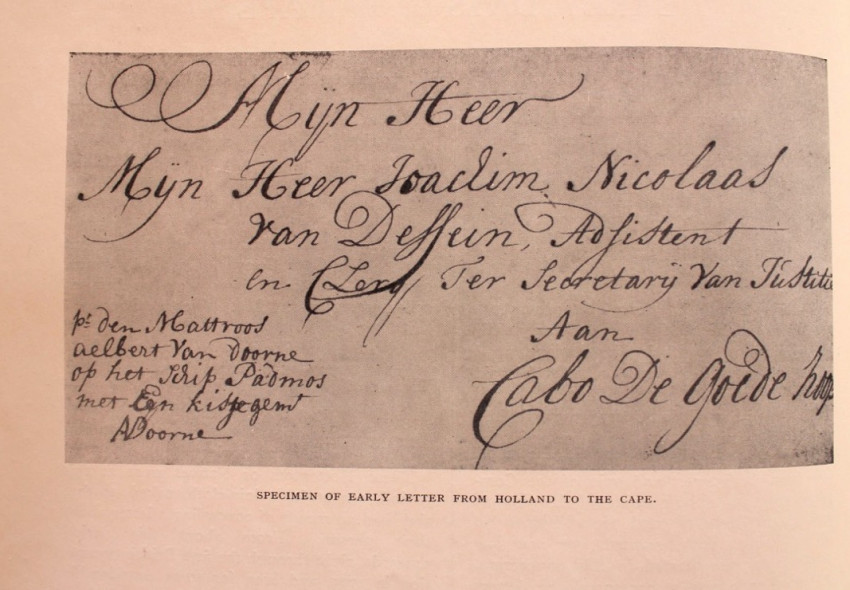 Mijn Heer
Mijn Heer Joachim Nicolaas
Van Dessein, Adsistent
en Clerq Ter Secretarij Van Justitie
Aan
Cabo De Goede hoop
pr den Mattroos
aelbert Van Doorne
op het Schip Padmos
met Een kisje gemt
ADoorne
SPECIMEN OF EARLY LETTER FROM HOLLAND TO THE CAPE.